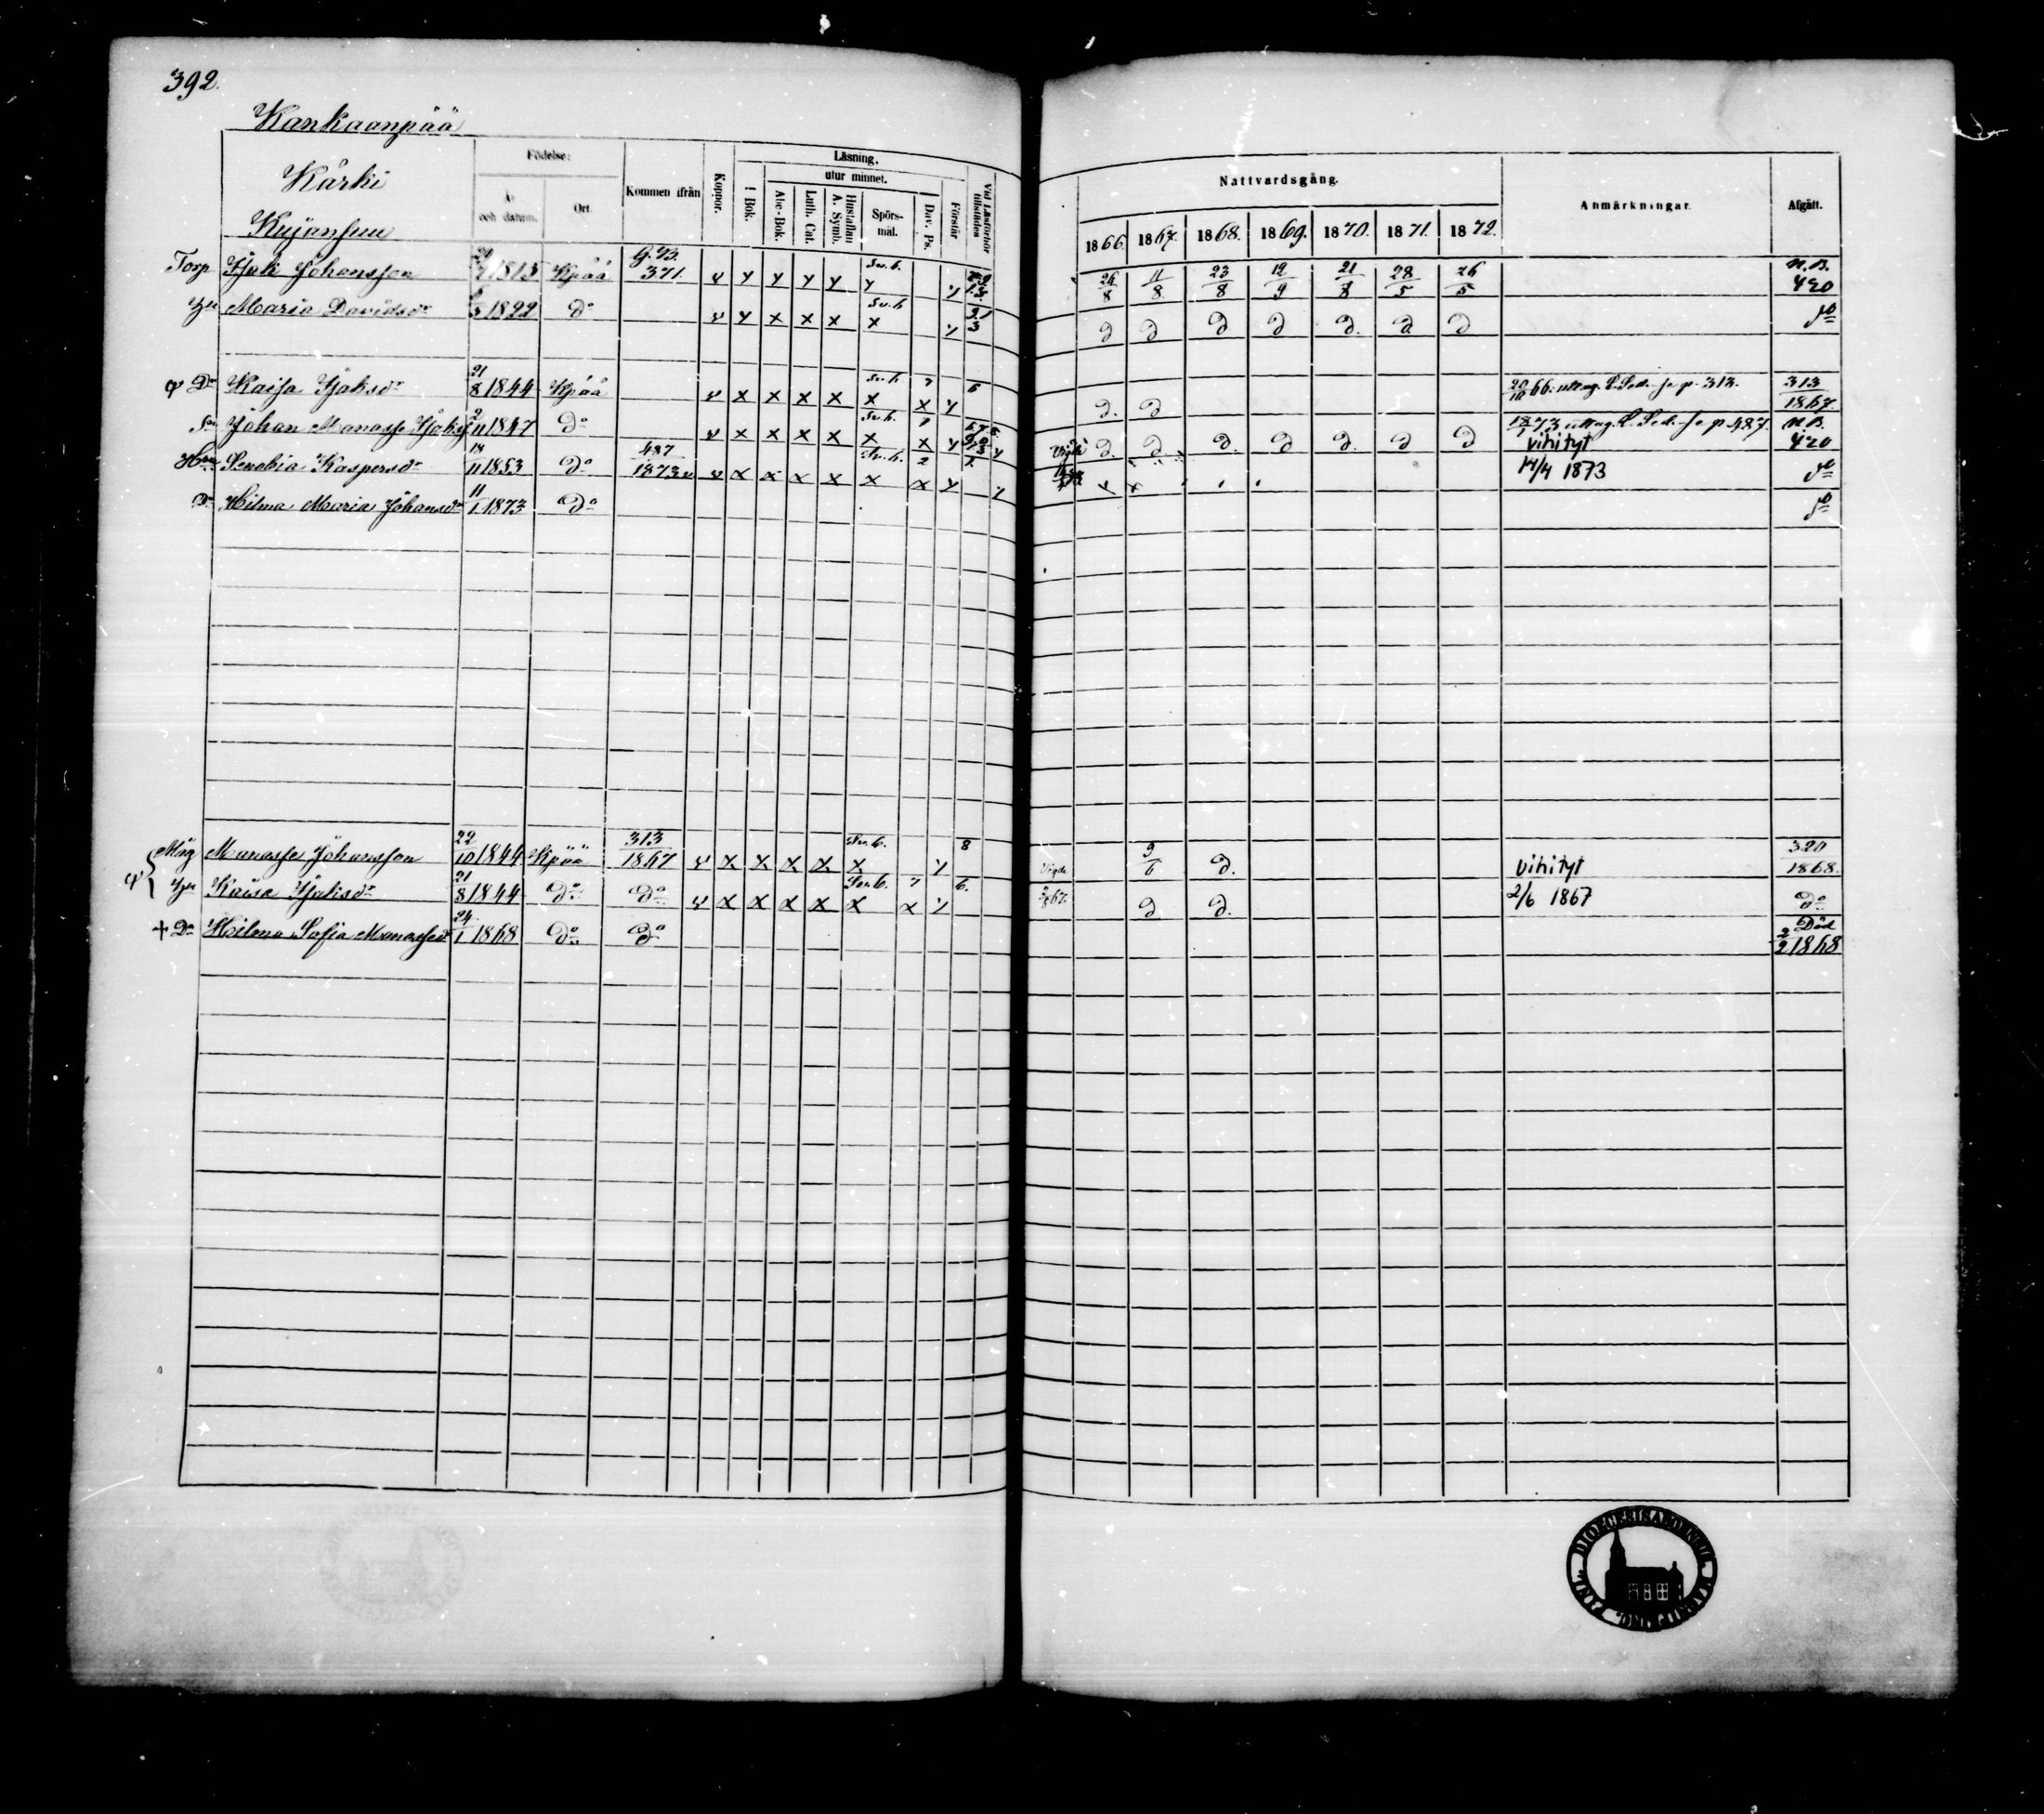 392.
Kankaanpää
Kärki
Kujansuu
Födelse:
År och datum.
Ort
Kommen ifrån
Koppor.
Läsning.
utur minnet.
I Bok.
Abc-Bok.
Luth. Cat.
Hustaflan A. Symb.
Spörs-mål.
Dav. Ps.
Förstår
Vid Läsförhör tillstädes
Nattvardsgång.
1866. 1867. 1868. 1869. 1870. 1871. 1872.
Anmärkningar.
Afgått.
Torp Isak Johansson 1815 Kpää G.B. 371. v y y y y Sv.b. y 26/8 11/8 23/8 12/9 21/8 28/5 26/5 N.B. 420
Hu Maria Davidsdr 1822 do v y x x x Sv.b. x d d d d d d d do
Dr Kaisa Isaksdr 21/8 1844 Kpää v x x x x Sv.b. x 7 x y 6 d. d 20/10 66. uttag. L. Sed. se p. 313. 313/1867.
Son Johan Manasse Isaksson 2/11 1847 do v x x x x Sv.b. x x y d d d. d d. d d 73 uttag. L. Sed. se p 487. N.B. 420
vihityt
14/4 1873
Senobia Kaspersdr 18/11 1853 do 487/1873 v x x x x Sv.b. x 2 x y do
Dr Hilma Maria Johansdr 11/1 1873 do do
Måg Manasse Johansson 22/10 1844 Kpää 313/1867 v x x x x Sv.b. x y 8 Vigde 9/6 d. vihityt 320/1868.
Hu Kaisa Isaksdr 21/8 1844 do do v x x x x Sv.b. x 7 x y 6. d d. 2/6 1867 do
+ Dr Hilma Sofia Manassedr 24/1 1868 do do Död 2/2 1868
DIOECESIS ABOENSIS